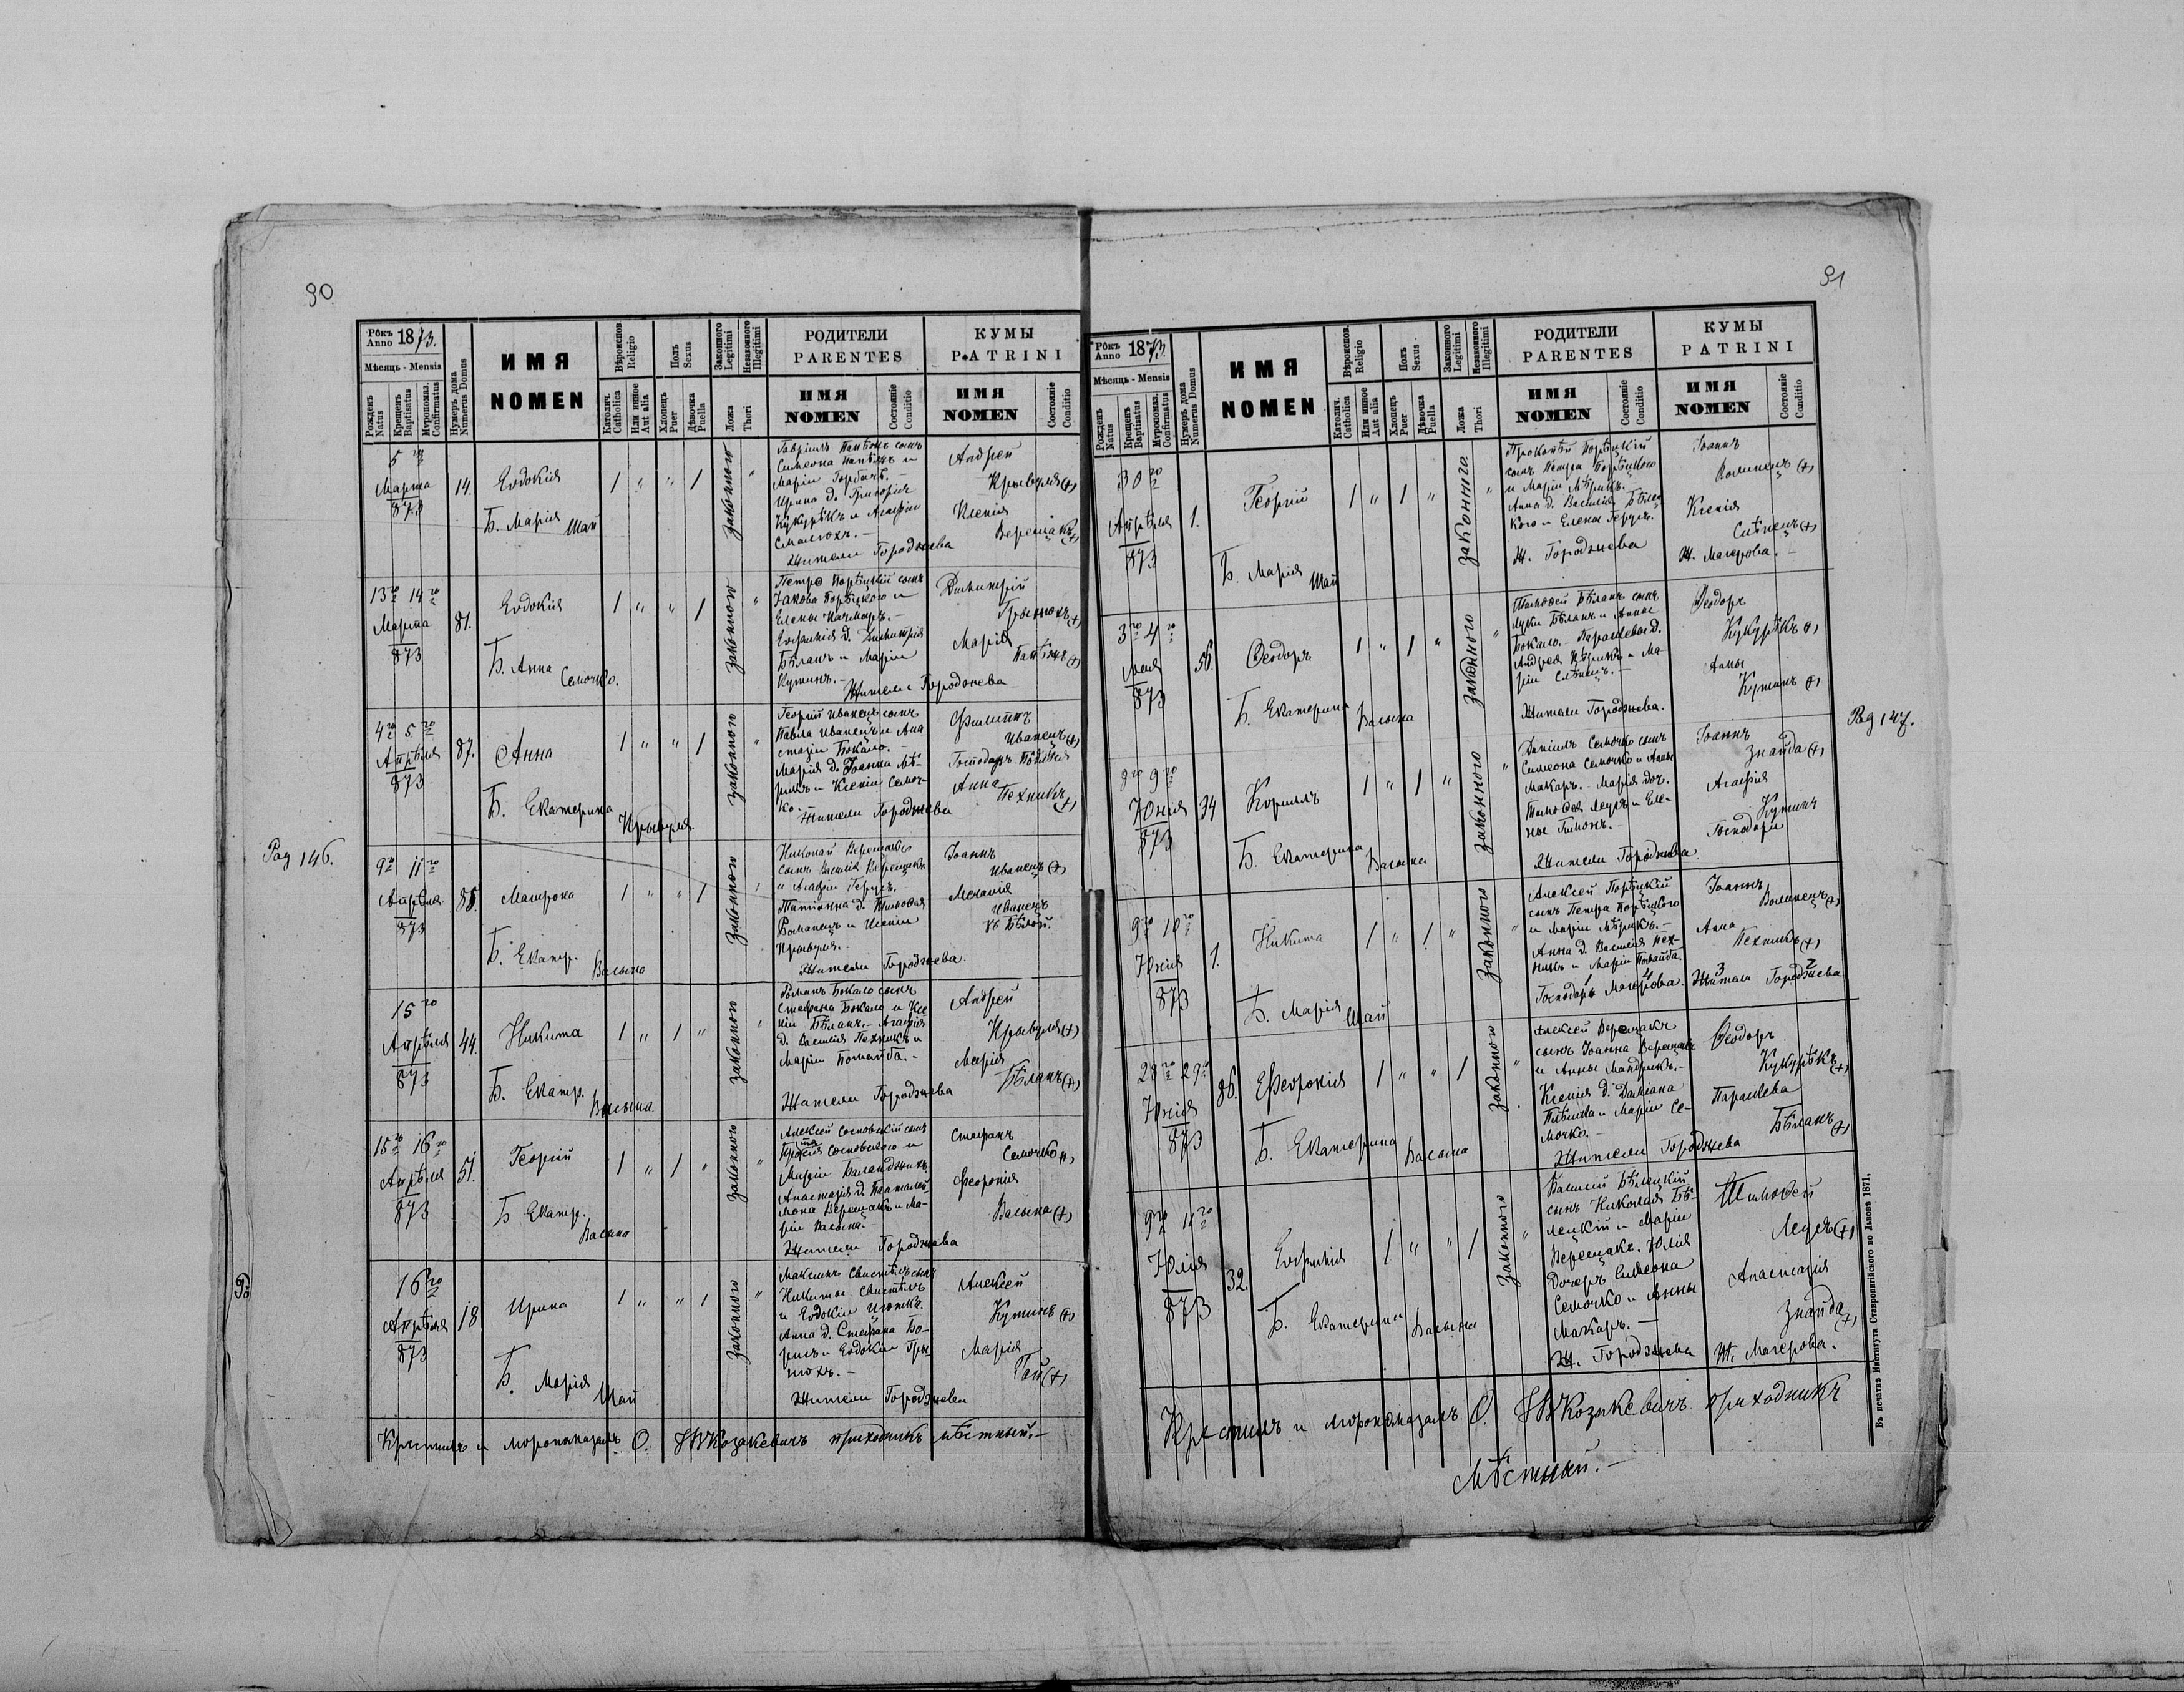 90
Рôкъ Anno 1873.
Мѣсяць - Mensis
Рожденъ Natus
Крещенъ Baptisatus
Мѵропомаз. Confirmatus
Нумеръ дома Numerus Domus
ИМЯ
NOMEN
Вѣроиспов. Religio
Католич. Catholica
Или инное Aut alia
Полъ Sexus
Хлопець Puer
Дѣвочка Puella
Законного Legitimi
Незаконного Illegitimi
Ложа Thori
РОДИТЕЛИ
PARENTES
ИМЯ
NOMEN
Состояніе Conditio
КУМЫ
PATRINI
ИМЯ
NOMEN
Состояніе Conditio
5 го
Марта
873
14.
Евдокія
Б. Марія Шай
1 " " 1
законного "
Гавріилъ сынъ
Симеона и
Маріи Горбачъ.
Ирина д. Григорія
Кукурѣкъ и Агафіи
Смолюхъ.
Жители Городжева
Андрей
Крывуля (+)
Ксенія
Верещакъ (+)
13го 14го
Марта
873
81.
Евдокія
Б. Анна Семочко.
1 " " 1
законного "
Петро Порѣцкій сынъ
Іакова Порѣцкого и
Елены
Евфимія д. Димитрія
Бѣланъ и Маріи
Кутинъ.
Жители Городжева
Димитрій
Грынюхъ (+)
Марія
(+)
4го 5го
Апрѣля
873
87.
Анна
Б. Екатерина Крывуля
1 " " 1
законного "
Георгій Иванецъ сынъ
Павла Иванецъ и Ана
стазіи Бокало.
Марія д. Іоанна Мѣ-
рикъ и Ксеніи Семоч-
ко.
Жители Городжева
Филиппъ
Иванецъ (+)
Господарь
Анна
Пехникъ (+)
Pag 146.
9го 11го
Апрѣля
873
88.
Матрона
Б. Екатр. Васына
1 " " 1
законного "
Николай Верещакъ
сынъ Василія Верещакъ
и Агафіи Герусъ.
Татіанна д. Тимофея
Романецъ и Ксеніи
Крывуля.
Жители Городжева.
Іоаннъ
Иванецъ (+)
Меланія
Иванецъ
15го
Апрѣля
873
44.
Никита
Б. Екатр. Васына
1 " 1 "
законного "
Романъ Бокало сынъ
Стефана Бокало и Ксе
ніи Бѣланъ. Агафія
д. Василія Пехникъ и
Маріи Помайба.
Жители Городжева
Андрей
Крывуля (+)
Марія
Бѣланъ (+)
15го 16го
Апрѣля
873
51.
Георгій
Б Екатр. Васына
1 " 1 "
законного "
Алексей Сосновскій сынъ
Сосновского и
Маріи
Анастазія д. Пантелей-
мона Верещакъ и Ма-
ріи Васына.
Жители Городжева
Стефанъ
Семочко (+)
Февронія
Васына (+)
16го
Апрѣля
873
18
Ирина
Б. Марія Шай
1 " " 1
законного "
Максимъ Свистѣль сынъ
Никиты Свистѣль
и Евдокіи
Анна д. Стефана Бо-
рисъ и Евдокіи Гры
нюхъ.
Жители Городжева
Алексей
Кутинъ (+)
Марія
Гай (+)
Крестилъ и мѵропомазалъ О. Козакевичъ приходникъ мѣстный.
91
Рôкъ Anno 1873.
Мѣсяць - Mensis
Рожденъ Natus
Крещенъ Baptisatus
Мѵропомаз. Confirmatus
Нумеръ дома Numerus Domus
ИМЯ
NOMEN
Вѣроиспов. Religio
Католич. Catholica
Или инное Aut alia
Полъ Sexus
Хлопець Puer
Дѣвочка Puella
Законного Legitimi
Незаконного Illegitimi
Ложа Thori
РОДИТЕЛИ
PARENTES
ИМЯ
NOMEN
Состояніе Conditio
КУМЫ
PATRINI
ИМЯ
NOMEN
Состояніе Conditio
30го
Апрѣля
873
1.
Георгій
Б. Марія Шай
1 " 1 "
законного "
Прокопій Порѣцкій
сынъ Петра Порѣцкого
и Маріи Мѣрикъ.
Анна д. Василія Бѣлец
кого и Елены Герусъ.
Ж. Городжева
Іоаннъ
Волинецъ (+)
Ксенія
Слѣпецъ (+)
Ж. Магерова.
3го 4го
Мая
873
56
Феодоръ
Б. Екатерина Васына
1 " 1 "
законного "
Тимофей Бѣланъ сынъ
Луки Бѣланъ и Анны
Бокало. Параскева д.
Андрея и Ма-
ріи Слѣпецъ.
Жители Городжева.
Феодоръ
Кукурѣкъ (+)
Анны
Кутинъ (+)
Pag 147.
8го 9го
Юнія
873
34
Кориллъ
Б. Екатерина Васына
1 " 1 "
законного "
Даніилъ Семочко сынъ
Симеона Семочко и Анны
Макаръ. Марія доч.
Тимофея Лецъ и Еле-
ны
Жители Городжева
Іоаннъ
Знайда (+)
Агафія
Кутинъ
Господари
9го 10го
Юнія
873
1.
Никита
Б. Марія Шай
1 " 1 "
законного "
Алексей Порѣцкій
сынъ Петра Порѣцкого
и Маріи Мѣрикъ.
Анна д. Василія Пех-
никъ и Маріи Помайба.
Господарь Магерова. Жители Городжева
1 4 3 2
Іоаннъ
Волинецъ (+)
Анна
Пехникъ (+)
28го 29го
Юнія
873
86.
Февронія
Б. Екатерина Васына
1 " " 1
законного "
Алексей Верещакъ
сынъ Іоанна Верещакъ
и Анны Мандрикъ.
Ксенія д. Даміана
и Маріи Се-
мочко.
Жители Городжева
Феодоръ
Кукурѣкъ (+)
Параскева
Бѣланъ (+)
9го 11го
Юлія
873
32.
Евфимія
Б. Екатерина Васына
1 " " 1
законного "
Василій Бѣлецкій
сынъ Николая Бѣ-
лецкій и Маріи
Верещакъ. Юлія
дочерь Симеона
Семочко и Анны
Макаръ.
Ж. Городжева
Тимофей
Лецъ (+)
Анастазія
Знайда (+)
Ж. Магерова.
Крестилъ и мѵропомазалъ О. Козакевичъ приходникъ
мѣстный.
Въ печатни Института Ставропигійского во Львовѣ 1871.